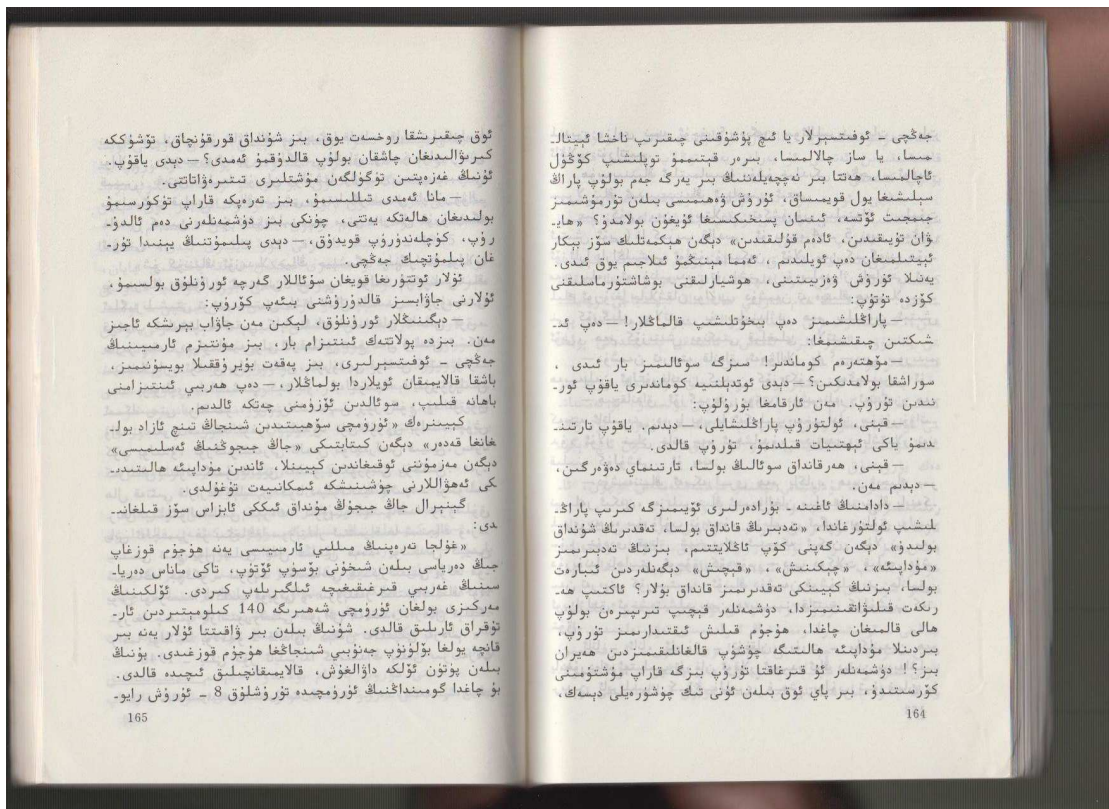 جەڭچى ـ ئوفىتسېرلار يا ئىچ پۇشۇقىنى چىقىرىپ ناخشا ئېيتالـ
مىسا، يا ساز چالالمىسا، بىرەر قېتىممۇ توپلىشىپ كۆڭۈل
ئاچالمىسا، ھەتتا بىر نەچچەيلەننىڭ بىر يەرگە جەم بولۇپ پاراڭ
سېلىشىغا يول قويمىساق، ئۇرۇش ۋەھىمىسى بىلەن تۇرمۇشىمىز
جىمجىت ئۆتسە، ئىنسان پسىخىكىسىغا ئۇيغۇن بولامدۇ؟ «ھايـ
ۋان تۇيىقىدىن، ئادەم قۇلىقىدىن» دېگەن ھېكمەتلىك سۆز بىكار
ئېيتىلمىغان دەپ ئويلىدىم، ئەمما مېنىڭمۇ ئىلاجىم يوق ئىدى.
يەنىلا ئۇرۇش ۋەزىيىتىنى، ھوشيارلىقنى بوشاشتۇرماسلىقنى
كۆزدە تۇتۇپ:
— پاراڭلىشىمىز دەپ بىخۇتلىشىپ قالماڭلار! — دەپ ئىـ
شىكتىن چىقىشىمغا:
— مۆھتەرەم كوماندىر! سىزگە سوئالىمىز بار ئىدى،
سوراشقا بولامدىكىن؟ — دېدى ئوتدېلنىيە كوماندىرى ياقۇپ ئورـ
نىدىن تۇرۇپ. مەن ئارقامغا بۇرۇلۇپ:
— قېنى، ئولتۇرۇپ پاراڭلىشايلى، — دېدىم، ياقۇپ تارتىنـ
دىمۇ ياكى ئېھتىيات قىلدىمۇ، تۇرۇپ قالدى.
— قېنى، ھەرقانداق سوئالىڭ بولسا، تارتىنماي دەۋەرگىن،
— دېدىم مەن.
— دادامنىڭ ئاغىنە ـ بۇرادەرلىرى ئۆيىمىزگە كىرىپ پاراڭـ
لىشىپ ئولتۇرغاندا، «تەدبىرىڭ قانداق بولسا، تەقدىرىڭ شۇنداق
بولىدۇ» دېگەن گەپنى كۆپ ئاڭلايتتىم، بىزنىڭ تەدبىرىمىز
«مۇداپىئە»، «چېكىنىش»، «قېچىش» دېگەنلەردىن ئىبارەت
بولسا، بىزنىڭ كېيىنكى تەقدىرىمىز قانداق بولار؟ ئاكتىپ ھەـ
رىكەت قىلىۋاتقىنىمىزدا، دۈشمەنلەر قېچىپ تىرىپىرەن بولۇپ
ھالى قالمىغان چاغدا، ھۇجۇم قىلىش ئىقتىدارىمىز تۇرۇپ،
بىردىنلا مۇداپىئە ھالىتىگە چۈشۈپ قالغانلىقىمىزدىن ھەيران
بىز؟! دۈشمەنلەر ئۇ قىرغاقتا تۇرۇپ بىزگە قاراپ مۇشتۇمىنى
كۆرسىتىدۇ، بىر پاي ئوق بىلەن ئۇنى تىك چۈشۈرەيلى دېسەك،
164
ئوق چىقىرىشقا روخسەت يوق، بىز شۇنداق قورقۇنچاق، تۆشۈككە
كىرىۋالىدىغان چاشقان بولۇپ قالدۇقمۇ ئەمدى؟ — دېدى ياقۇپ.
ئۇنىڭ غەزەپتىن تۈگۈلگەن مۇشتلىرى تىترەۋاتاتتى.
— مانا ئەمدى تىللىسىمۇ، بىز تەرەپكە قاراپ تۈكۈرسىمۇ
بولىدىغان ھالەتكە يەتتى، چۈنكى بىز دۈشمەنلەرنى دەم ئالدۇـ
رۇپ، كۈچلەندۈرۈپ قويدۇق، — دېدى پىلىمۇتنىڭ يېنىدا تۇرـ
غان پىلىمۇتچىك جەڭچى.
ئۇلار ئوتتۇرىغا قويغان سوئاللار گەرچە ئورۇنلۇق بولسىمۇ،
ئۇلارنى جاۋابسىز قالدۇرۇشنى بىئەپ كۆرۈپ:
— دېگىنىڭلار ئورۇنلۇق، لېكىن مەن جاۋاب بېرىشكە ئاجىز
مەن. بىزدە پولاتتەك ئىنتىزام بار، بىز مۇنتىزىم ئارمىيىنىڭ
جەڭچى ـ ئوفىتسېرلىرى، بىز پەقەت بۇيرۇققىلا بويسۇنىمىز،
باشقا قالايمىقان ئويلاردا بولماڭلار، — دەپ ھەربىي ئىنتىزامنى
باھانە قىلىپ، سوئالدىن ئۆزۈمنى چەتكە ئالدىم.
كېيىنرەك «ئۈرۈمچى سۆھبىتىدىن شىنجاڭ تىنچ ئازاد بولـ
غانغا قەدەر» دېگەن كىتابتىكى «جاڭ جىجوڭنىڭ ئەسلىمىسى»
دېگەن مەزمۇننى ئوقىغاندىن كېيىنلا، ئاندىن مۇداپىئە ھالىتىدىـ
كى ئەھۋاللارنى چۈشىنىشكە ئىمكانىيەت تۇغۇلدى.
گېنېرال جاڭ جىجوڭ مۇنداق ئىككى ئابزاس سۆز قىلغانىـ
دى:
«غۇلجا تەرەپنىڭ مىللىي ئارمىيىسى يەنە ھۇجۇم قوزغاپ
جىڭ دەرياسى بىلەن شىخونى بۆسۈپ ئۆتۈپ، تاكى ماناس دەرياـ
سىنىڭ غەربىي قىرغىقىغىچە ئىلگىرىلەپ كىردى. ئۆلكىنىڭ
مەركىزى بولغان ئۈرۈمچى شەھىرىگە 140 كىلومېتىردىن ئارـ
تۇقراق ئارىلىق قالدى. شۇنىڭ بىلەن بىر ۋاقىتتا ئۇلار يەنە بىر
قانچە يولغا بۆلۈنۈپ جەنۇبىي شىنجاڭغا ھۇجۇم قوزغىدى. بۇنىڭ
بىلەن پۈتۈن ئۆلكە داۋالغۇش، قالايمىقانچىلىق ئىچىدە قالدى.
بۇ چاغدا گومىنداڭنىڭ ئۈرۈمچىدە تۇرۇشلۇق 8 ـ ئۇرۇش رايوـ
165